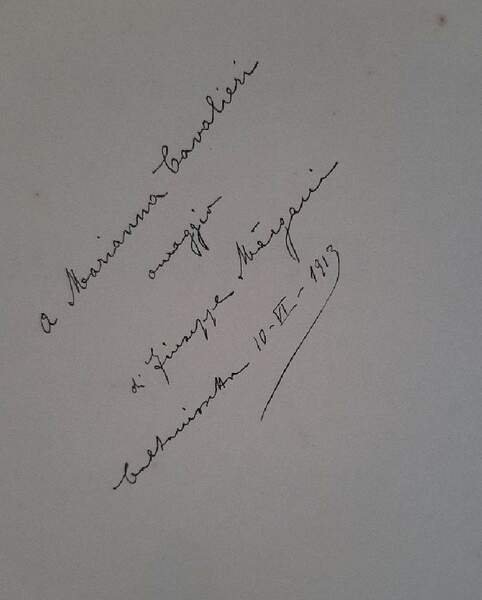 a Marianna Cavalieri
omaggio
di Giuseppe
Caltanissetta 10-VI-1913